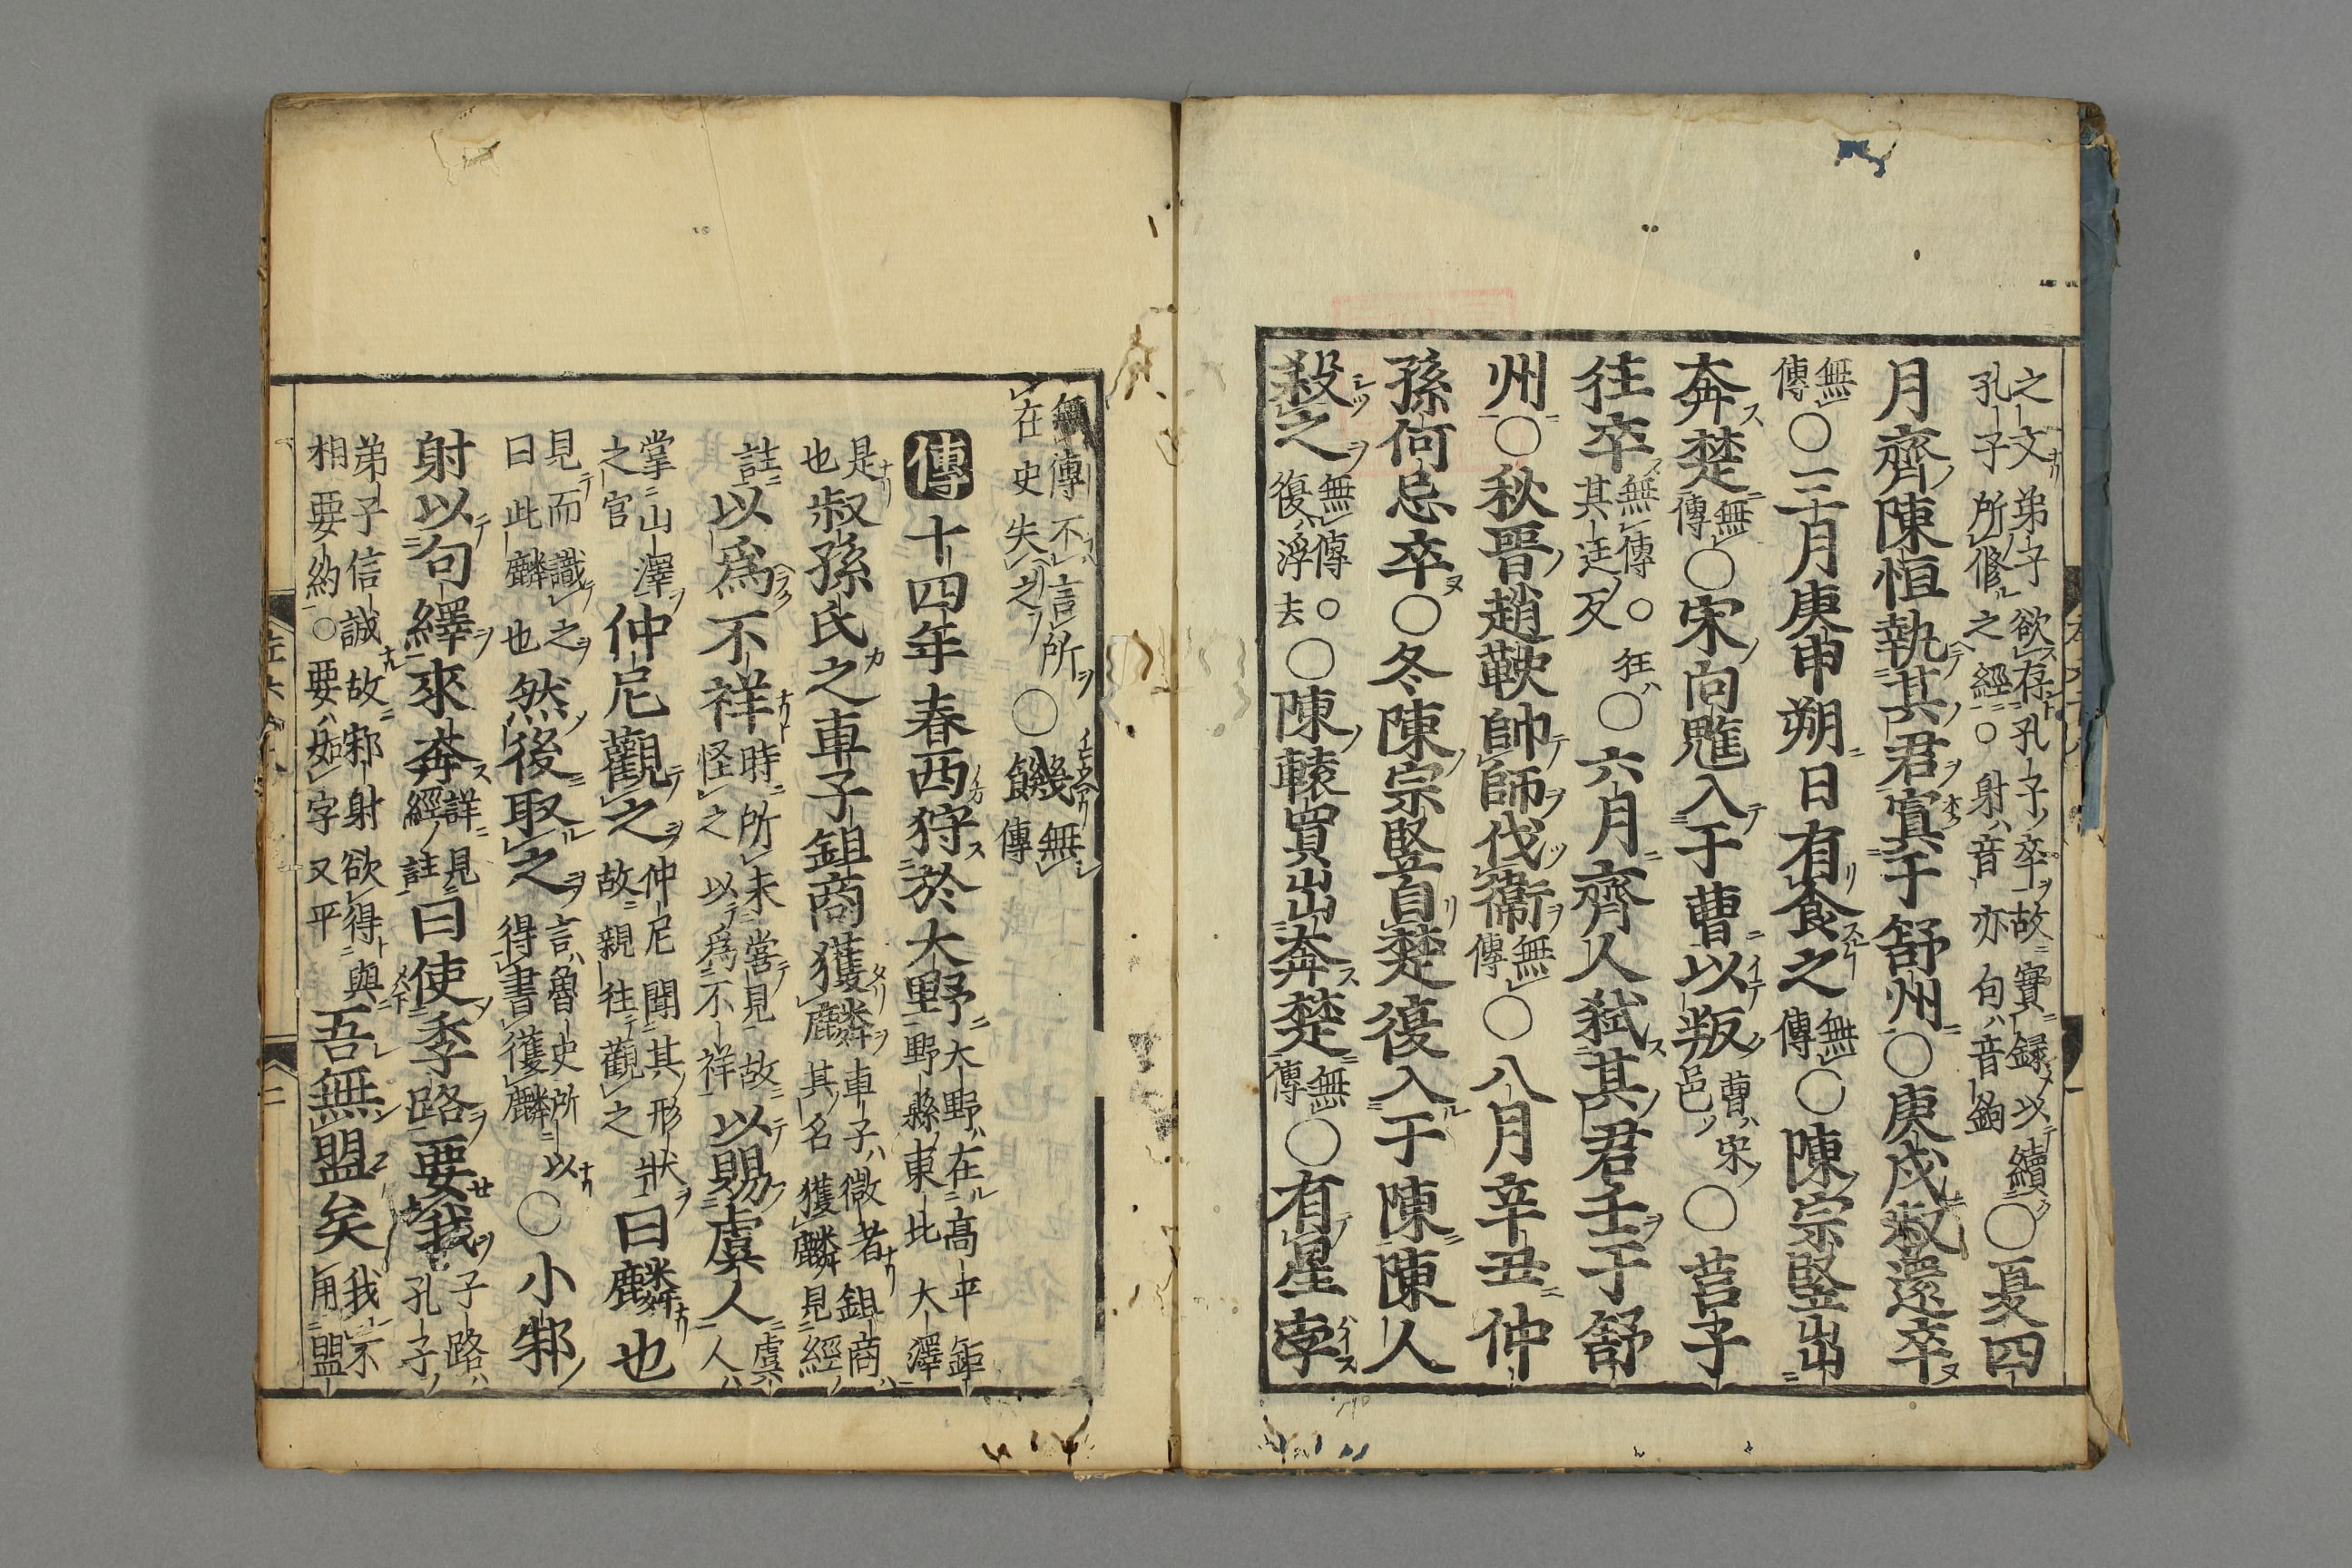 之文弟子欲存孔子卒故實録以續
孔子所修之經○射音亦句音鉤
○夏四
月齊陳恒執其君寘于舒州○庚戌叔還卒
無傳
○三月庚申朔日有食之
無傳
○陳宗豎出
奔楚
無傳
○宋向魋入于曹以叛
曹宋邑
○莒子
狂卒
無傳○狂其廷反
○六月齊人弑其君壬于舒
州○秋晉趙鞅帥師伐衞
無傳
○八月辛丑仲
孫何忌卒○冬陳宗豎自楚復入于陳陳人
殺之
無傳○復浮去
○陳轅買出奔楚
無傳
○有星孛
無傳不言所在史失之
○饑
無傳
傳十四年春西狩於大野
大野在高平鉅野縣東北大澤
是也
叔孫氏之車子鉏商獲麟
車子微者鉏商其名獲麟見經
註
以爲不祥
時所未嘗見故怪之以爲不祥
以賜虞人
虞人
掌山澤之官
仲尼觀之
仲尼聞其形狀故親往觀之
曰麟也
見而識之曰此麟也
然後取之
言魯史所以得書獲麟
○小邾
射以句繹來奔
詳見經註
曰使季路要我
子路孔子
弟子信誠故邾射欲得與相要約○要如字又平
吾無盟矣
我不用盟